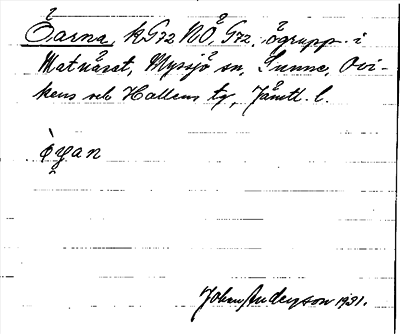 Öarna, kG72 NÖ, G72, ögrupp i
Matnäset, Myssjö sn, Sunne, Ovi-
kens och Hallens tg, Jämtl. l.
öyan
Johan Anderzson 1931.